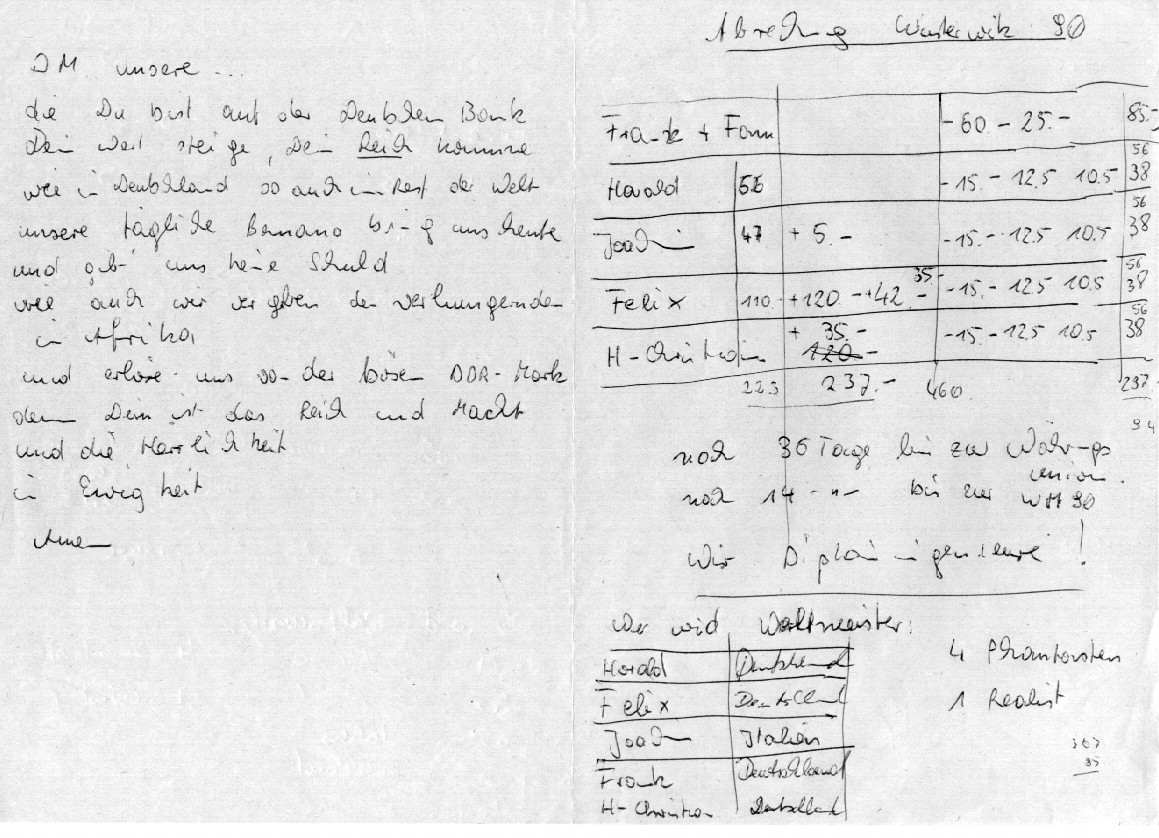 DM unsere ...
die Du bist auf der Deutschen Bank
Dein Wert steige, Dein Reich komme
wie in Deutschland so auch im Rest der Welt
unsere tägliche Banane bring uns heute
und gib uns keine Schuld
wie auch wir vergeben den verhungernden
in Afrika
und erlöse uns von der bösen DDR-Mark
denn Dein ist das Reich und Macht
und die Herrlichkeit
in Ewigkeit
Amen
Abrechnung 90
Frank + Fam -60.- 25.- 85.-
56
Harald 56 -15.- 12.5 10.5 38
56
Joachim 47 + 5.- -15.- 12.5 10.5 38
35.- 56
Felix 110.- +120.- +42.- -15.- 12.5 10.5 38
+ 35.- 56
H-Christian 120.- -15.- 12.5 10.5 38
223 237.- 460. 237.-
94
noch 36 Tage bis zur Währungs
union.
noch 14 -"- bis zur WM 90
Wir Diplomingenieure!
Wer wird Weltmeister:
Harald Deutschland
Felix Deutschland
Joachim Italien
Frank Deutschland
H-Christian Deutschland
4 Phantasten
1 Realist
307
85